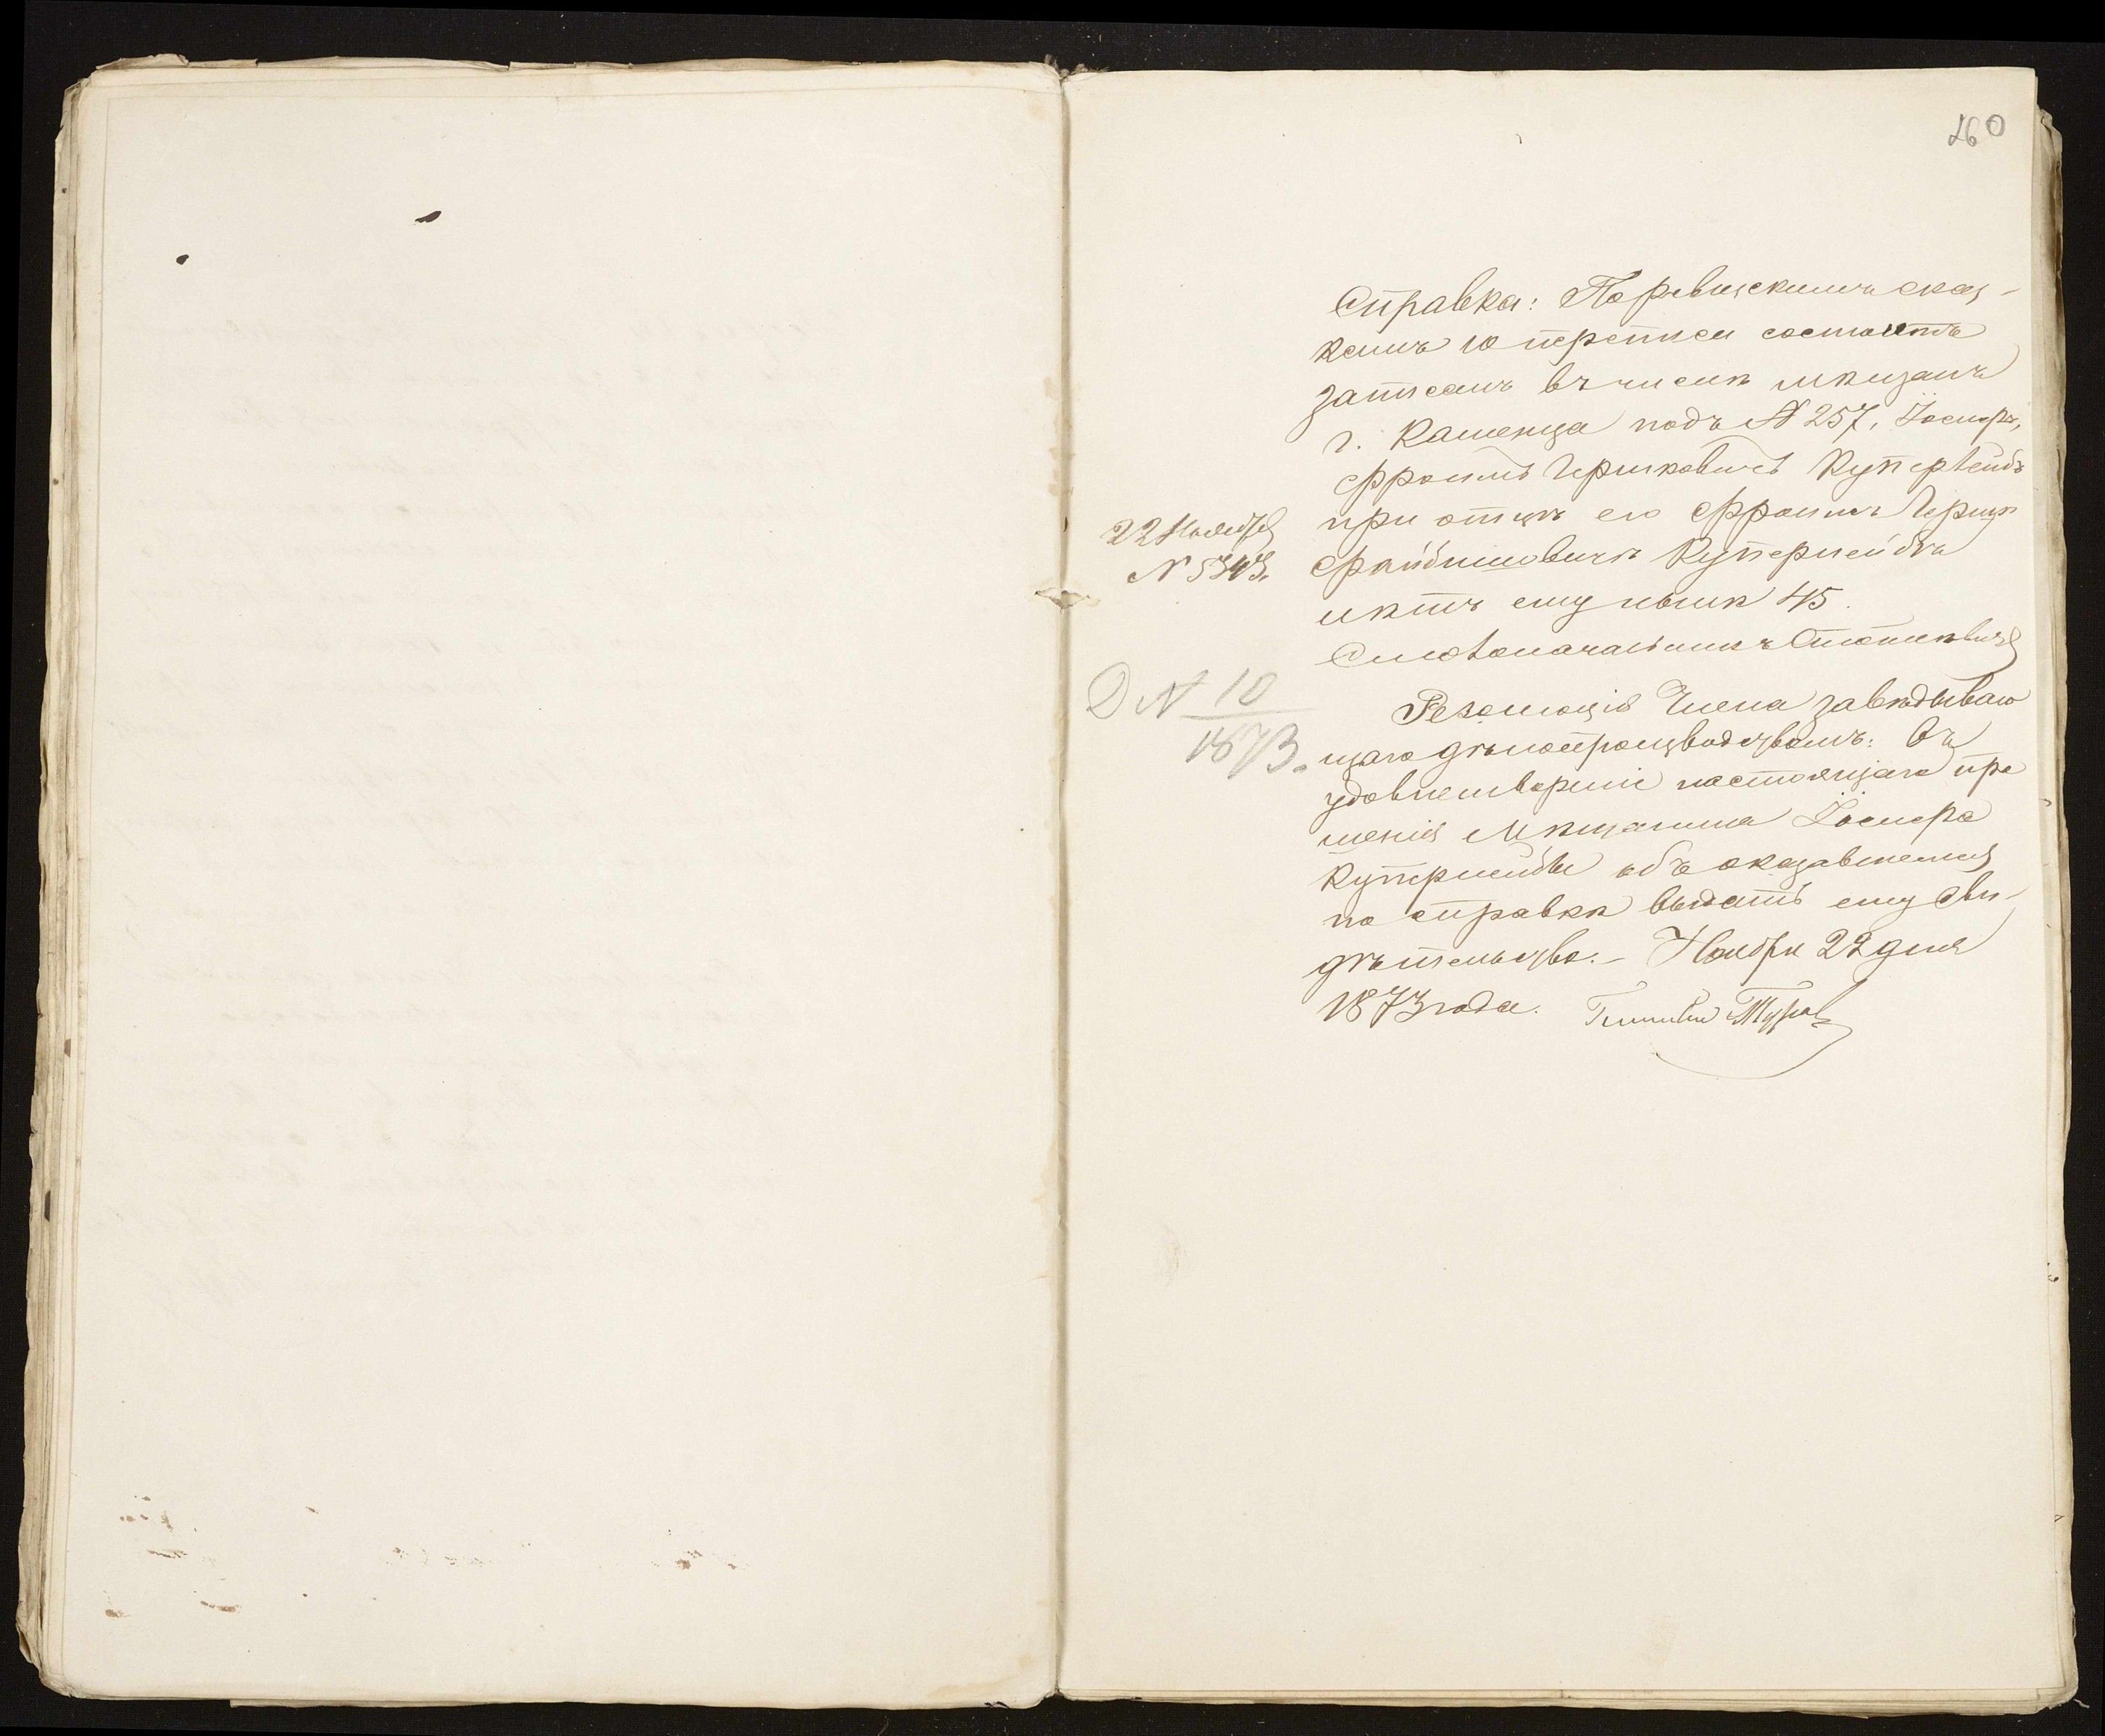 260
Справка: По ревизскимъ сказ-
камъ 10 переписи состоитъ
записанъ въ числѣ мѣщанъ
г. Каменца подъ № 257, Іосифъ,
Фроимъ Гершковичъ Купершмидъ
при отцѣ его Фроимъ Гершкѣ
Купершмидъ
лѣтъ ему нынѣ 45.
Столоначальникъ
22 Ноября
№ 5343.
Д № 10
1873.
Резолюція Члена завѣдываю
щаго дѣлопроизводствомъ: Въ
удовлетвореніе настоящаго про
шенія Мѣщанина Іосифа
Купершмида объ оказавшемся
по справкѣ выдать ему сви-
дѣтельство. – Ноября 22 дня
1873 года.